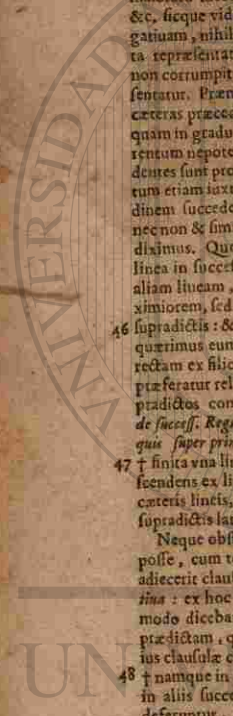 &c, sicque vid
gatiuam, nihil
ta repræsentat
non corrumpit
sentatur. Præn
cæteras præced
quam in gradu
rentum nepote
dentes sunt pro
tum etiam iuxt
dinem succede
nec non & sim
diximus. Quo
linea in succes
aliam lineam,
ximiorem, sed
46 supradictis: &
quærimus eum
rectam ex filio
præferatur rel
prædictos con
de success. Reg
quis super prim
47 † finita vna li
scendens ex li
cæteris lineis,
supradictis la
Neque obst
posse, cum t
adiecerit clau
tiua: ex hoc
modo diceba
prædictam, q
ius clausulæ c
48 † namque in
in aliis succe
deferuntur
UNIVERSIDAD
UN